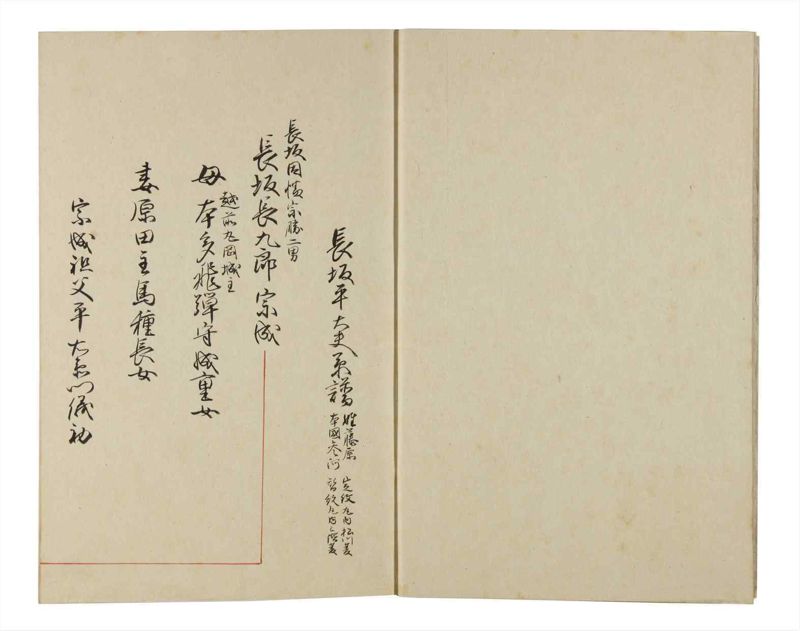 長坂平太夫系譜
姓藤原 定紋丸内松川菱
本國参河 替紋丸内三階菱
長坂因幡宗勝二男
長坂長九郎宗成
越前丸岡城主
母本多飛騨守成重女
妻原田主馬種長女
宗成祖父平右衛門儀初